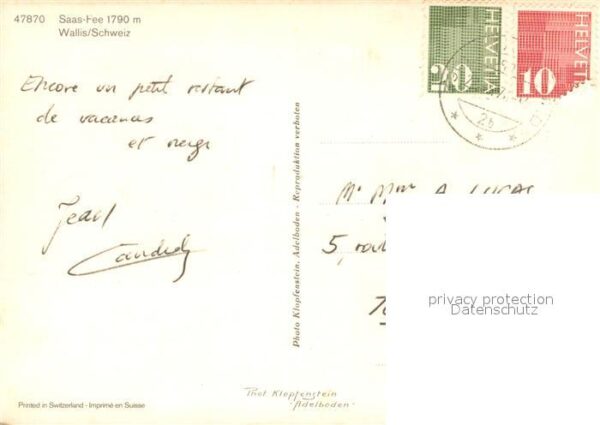 47870 Saas-Fee 1790 m
Wallis/Schweiz
HELVETIA 20
HELVETIA 10
26
Encore un petit restant
de vacances
et neige
Photo Klopfenstein, Adelboden - Reproduktion verboten
Mr Mme A. LUCAS
5, 
privacy protection
Datenschutz
Phot Klopfenstein
Adelboden
Printed in Switzerland - Imprimé en Suisse